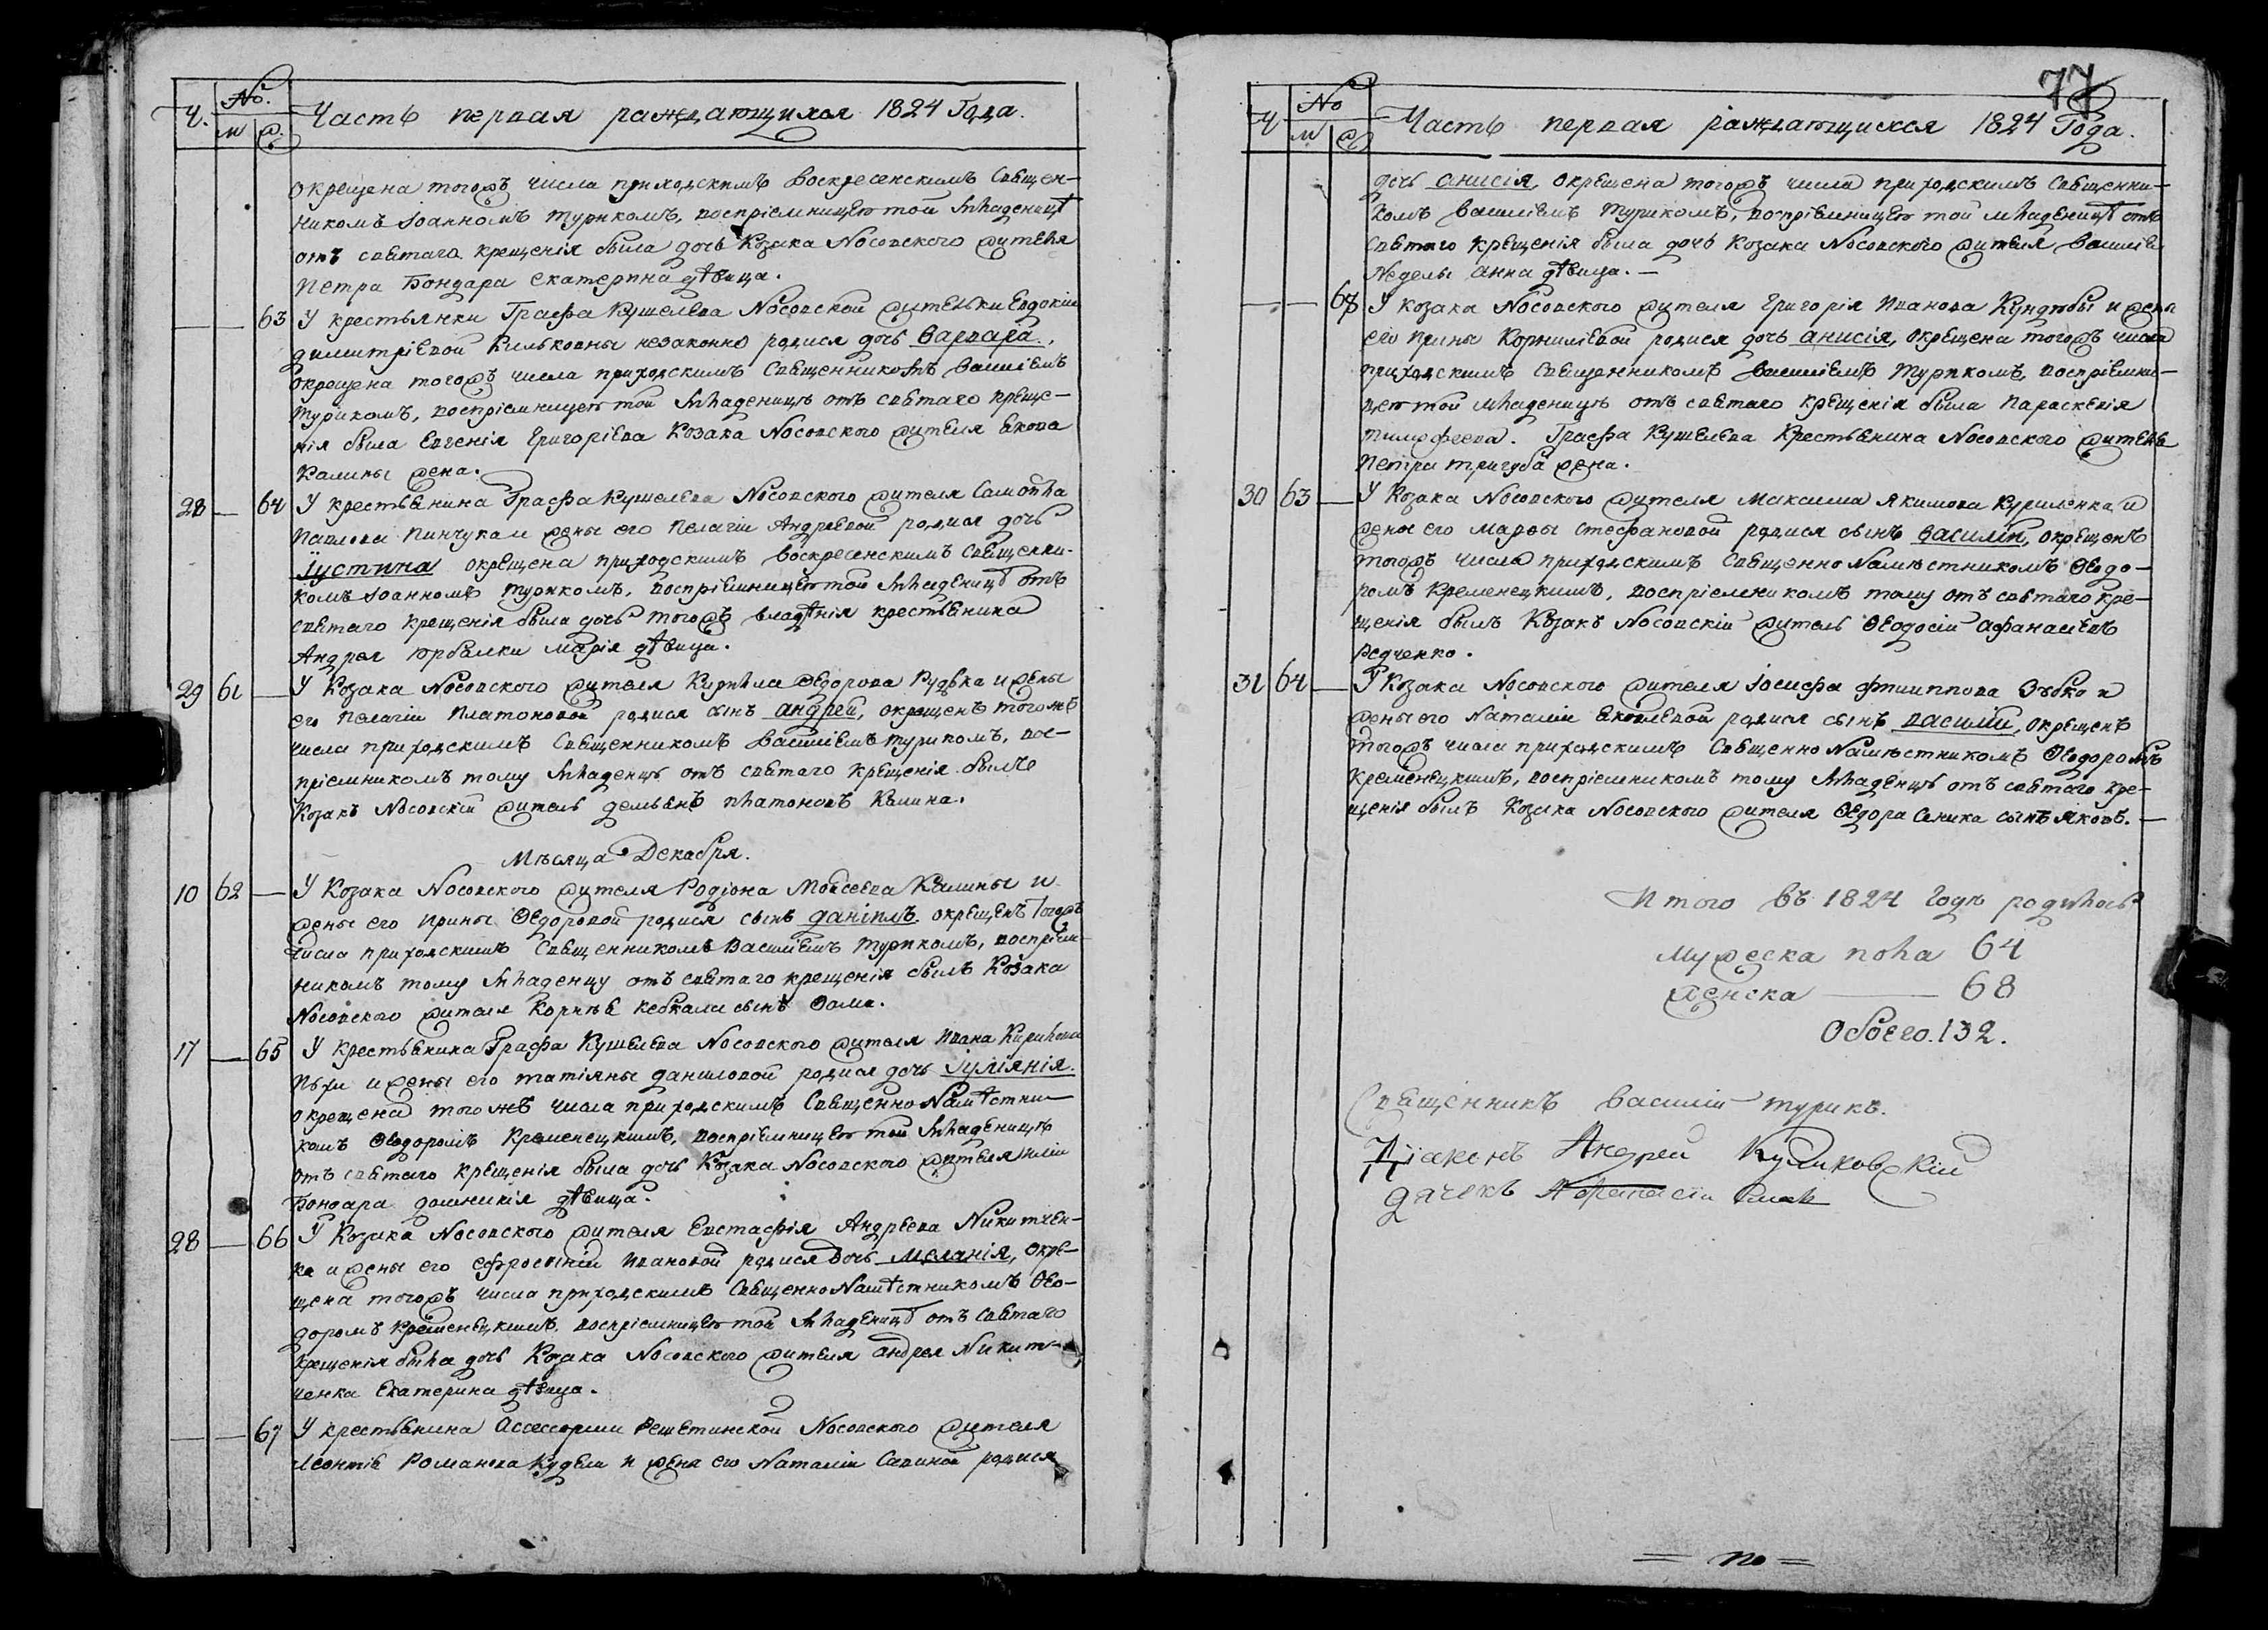 Ч. №. м ѳ. Часть первая раждающихся 1824 Года.
окрещена тогожъ числа приходскимъ Воскресенскимъ Священ-
никомъ Іоанномъ Турикомъ, воспріемницею той младеницѣ
отъ святаго крещенія была дочь Козака Носовского жителя
Петра Бондара Екатерина дѣвица.
— — 63 У крестьянки Графа Кушелева Носовской жительки Евдокіи
Димитріевой незаконно родися дочь Варвара,
окрещена тогожъ числа приходскимъ Священникомъ Василіемъ
Турикомъ, воспріемницею той младеницѣ отъ святаго креще-
нія была Евгенія Григоріева Козака Носовского жителя Якова
Калины жена.
28 — 64 У крестьянина Графа Кушелева Носовского жителя Самойла
Павлова Пинчука и жены его Пелагіи Андреевой родися дочь
Іустина окрещена приходскимъ Воскресенскимъ Священни-
комъ Іоанномъ Турикомъ, воспріемницею той младеницѣ отъ
святаго крещенія была дочь тогожъ владѣнія крестьянина
Андрея Юрбалки Марія дѣвица.
29 61 — У Козака Носовского жителя Кирила Ѳедорова Рудька и жены
его Пелагіи Платоновой родися сынъ Андрей, окрещенъ тогожъ
числа приходскимъ Священникомъ Василіемъ Турикомъ, вос-
пріемникомъ тому младенцѣ отъ святаго крещенія былъ
Козакъ Носовскій житель Демьянъ Платоновъ Калина.
Мѣсяца Декабря.
10 62 — У Козака Носовского жителя Родіона Моѵсеева Калины и
жены его Ирины Ѳедоровой родися сынъ Даніилъ окрещенъ тогожъ
числа приходскимъ Священникомъ Василіемъ Турикомъ, воспріем-
никомъ тому младенцу отъ святаго крещенія былъ Козака
Носовского жителя Корнѣя Кебкала сынъ Ѳома.
17 — 65 У крестьянина Графа Кушелева Носовского жителя Ивана Кирилова
и жены его Татіяны Даниловой родися дочь Іуліянія.
окрещена тогожъ числа приходскимъ Священно Намѣстни-
комъ Ѳеодоромъ Кременецкимъ, воспріемницею той младеницѣ
отъ святаго крещенія была дочь Козака Носовского жителя Иліи
Бондара Домникія дѣвица.
28 — 66 У Козака Носовского жителя Евстафія Андреева Никитчен-
ка и жены его Ефросиніи Ивановой родися дочь Меланія, окре-
щена тогожъ числа приходскимъ Священно Намѣстникомъ Ѳео-
доромъ Кременецкимъ, воспріемницею той младеницѣ отъ святаго
крещенія была дочь Козака Носовского жителя Андрея Никит-
ченка Екатерина дѣвица.
— — 67 У крестьянина Ассессорши Решетинской Носовского жителя
Леонтія Романова Кудели и жены его Наталіи Савиной родися
77
Ч № м ѳ Часть первая раждающихся 1824 Года.
дочь Анисія, окрещена тогожъ числа приходскимъ Священни-
комъ Василіемъ Турикомъ, воспріемницею той младеницѣ отъ
святаго крещенія была дочь Козака Носовского жителя Василія
Неделы Анна дѣвица. —
— — 68 У Козака Носовского жителя Григорія Иванова и жены
его Ирины Корниліевой родися дочь Анисія, окрещена тогожъ числа
приходскимъ Священникомъ Василіемъ Турикомъ, воспріемни-
цею той младеницѣ отъ святаго крещенія была Параскевія
Тимофеева. Графа Кушелева Крестьянина Носовского жителя
Петра Тригуба жена.
30 63 — У Козака Носовского жителя Максима Якимова Куриленка и
жены его Марѳы Стефановой родися сынъ Василій, окрещенъ
тогожъ числа приходскимъ Священно Намѣстникомъ Ѳеодо-
ромъ Кременецкимъ, воспріемникомъ тому отъ святаго кре-
щенія былъ Козакъ Носовскій житель Ѳеодосій Афанасіевъ
Редченко.
31 64 — У Козака Носовского жителя Іосифа Филиппова Зѣбка и
жены его Наталіи Яковлевой родися сынъ Василій, окрещенъ
тогожъ числа приходскимъ Священно Намѣстникомъ Ѳеодоромъ
Кременецкимъ, воспріемникомъ тому младенцѣ отъ святаго кре-
щенія былъ Козака Носовского жителя Ѳедора Сеника сынъ Яковъ. —
Итого въ 1824 годѣ родилось
мужеска пола 64
женска — 68
Обоего. 132.
Священникъ Василій Турикъ.
Діаконъ Андрей Куликовскій
Дячекъ Афанасій